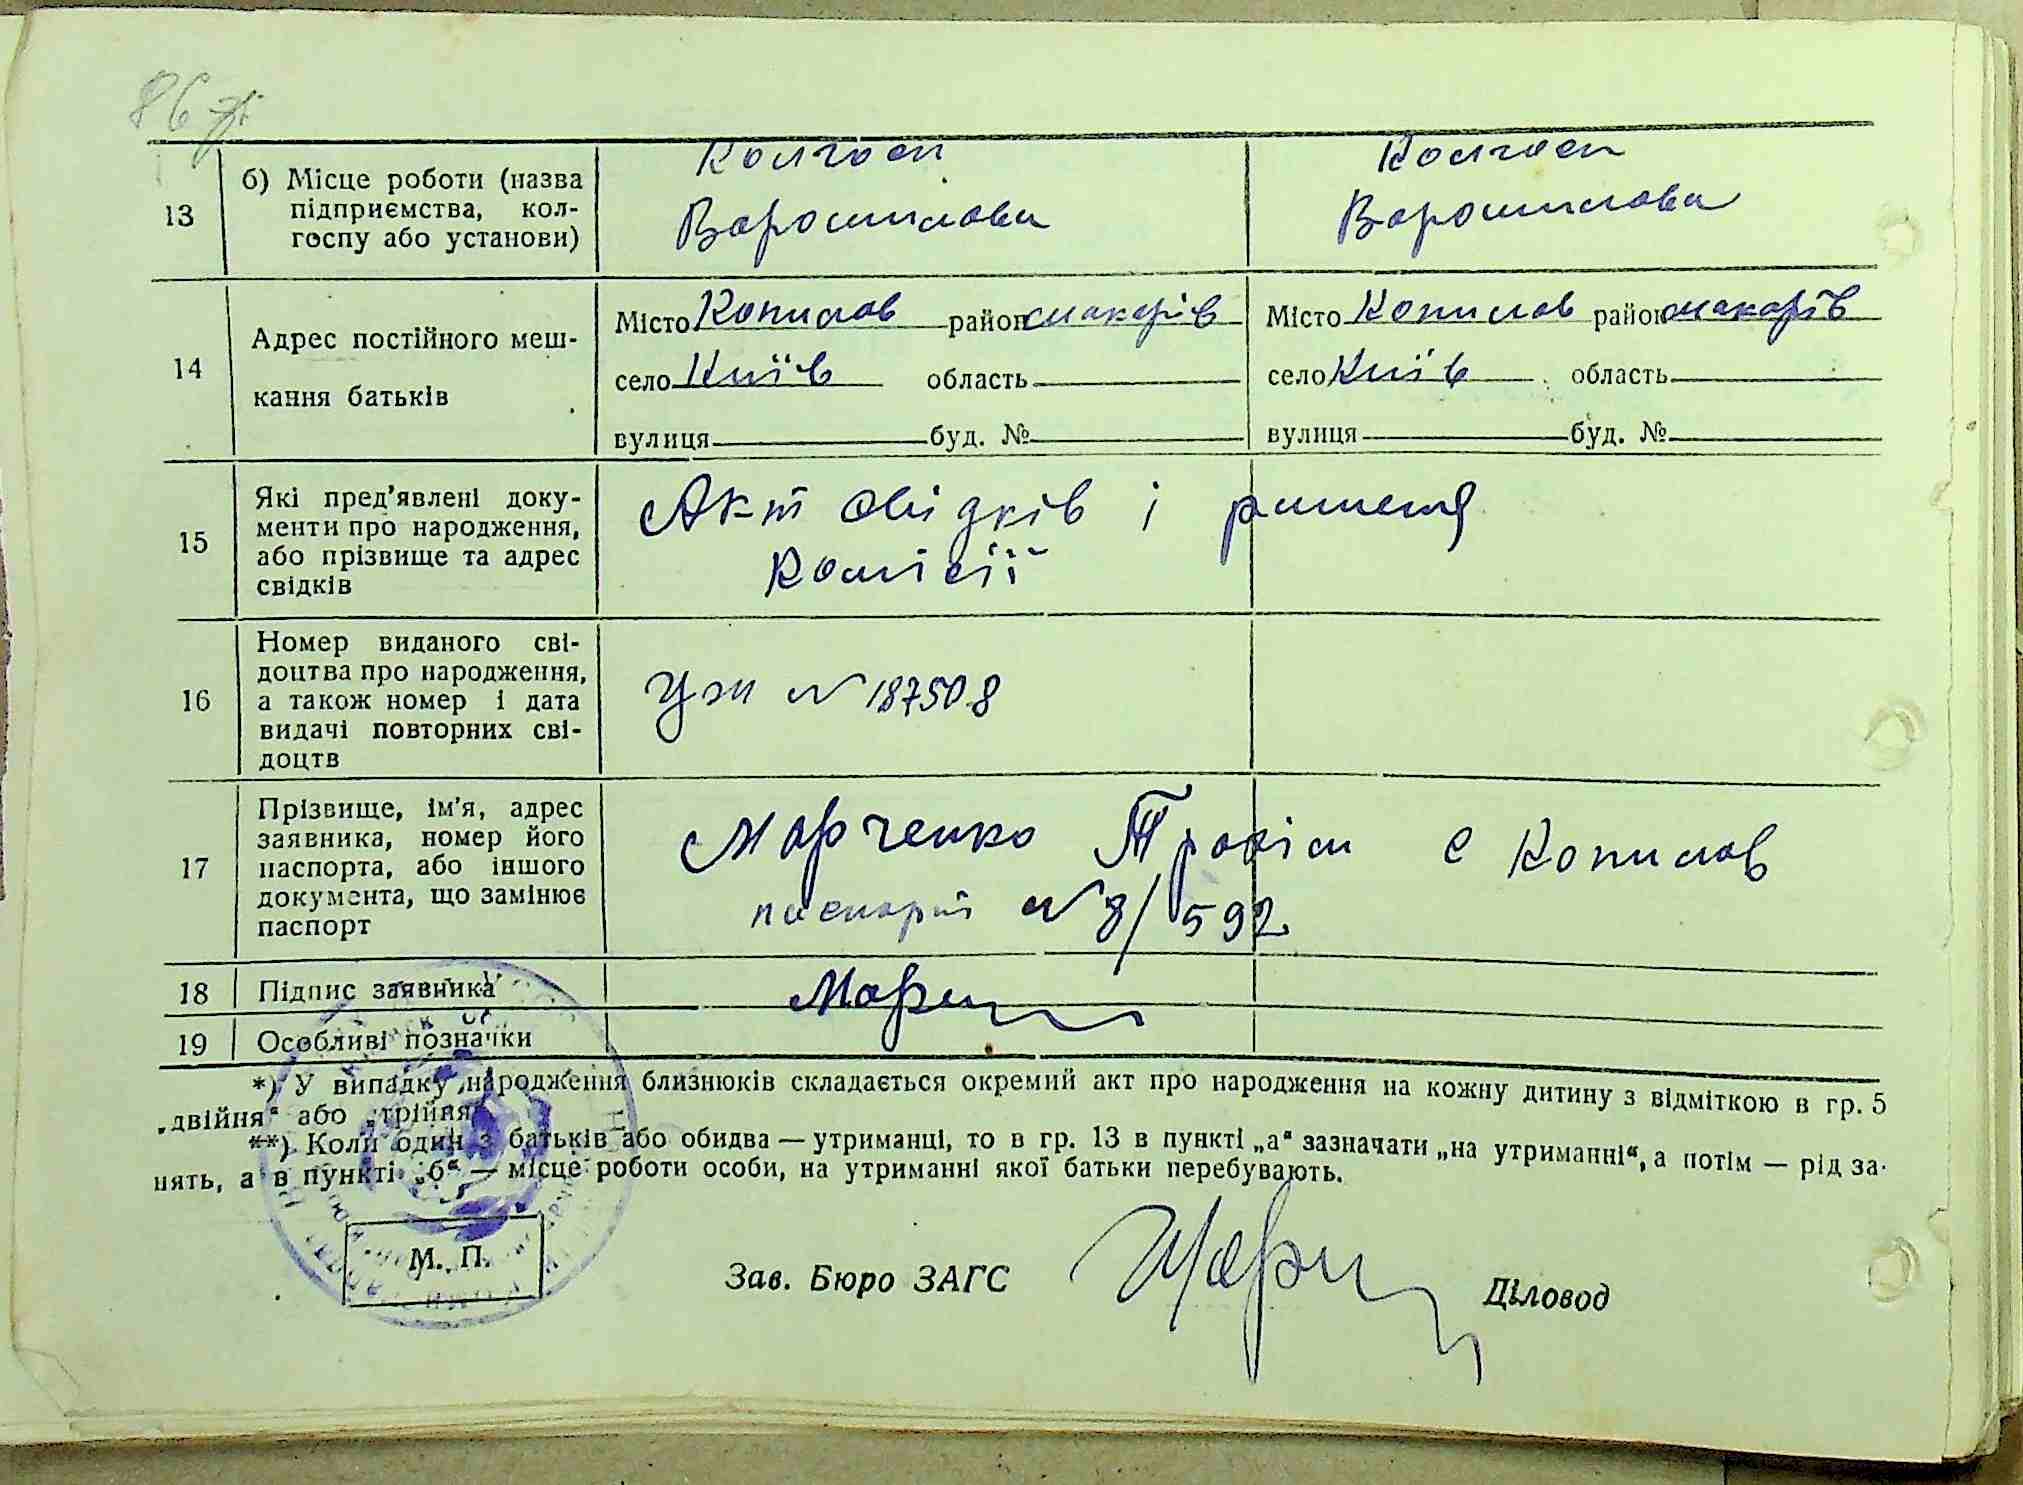 86 зв.
13 б) Місце роботи (назва Колгосп Колгосп
підприємства, кол- Ворошилова Ворошилова
госпу або установи)
14 Адрес постійного меш- Місто Копилов район Макарів Місто Копилов район Макарів
кання батьків село Київ область село Київ область
вулиця буд. № вулиця буд. №
15 Які пред'явлені доку- Акт свідків і рішеня
менти про народження, Комісії
або прізвище та адрес
свідків
16 Номер виданого сві- УЖ № 187508
доцтва про народження,
а також номер і дата
видачі повторних сві-
доцтв
17 Прізвище, ім'я, адрес Марченко Трохім с Копилов
заявника, номер його паспорт № 8/592
паспорта, або іншого
документа, що замінює
паспорт
18 Підпис заявника Марч
19 Особливі позначки
*) У випадку народження близнюків складається окремий акт про народження на кожну дитину з відміткою в гр. 5
„двійня“ або „трійня“
**) Коли один з батьків або обидва — утриманці, то в гр. 13 в пункті „а“ зазначати „на утриманні“, а потім — рід за-
нять, а в пункті „б“ — місце роботи особи, на утриманні якої батьки перебувають.
М. П.
Зав. Бюро ЗАГС Діловод